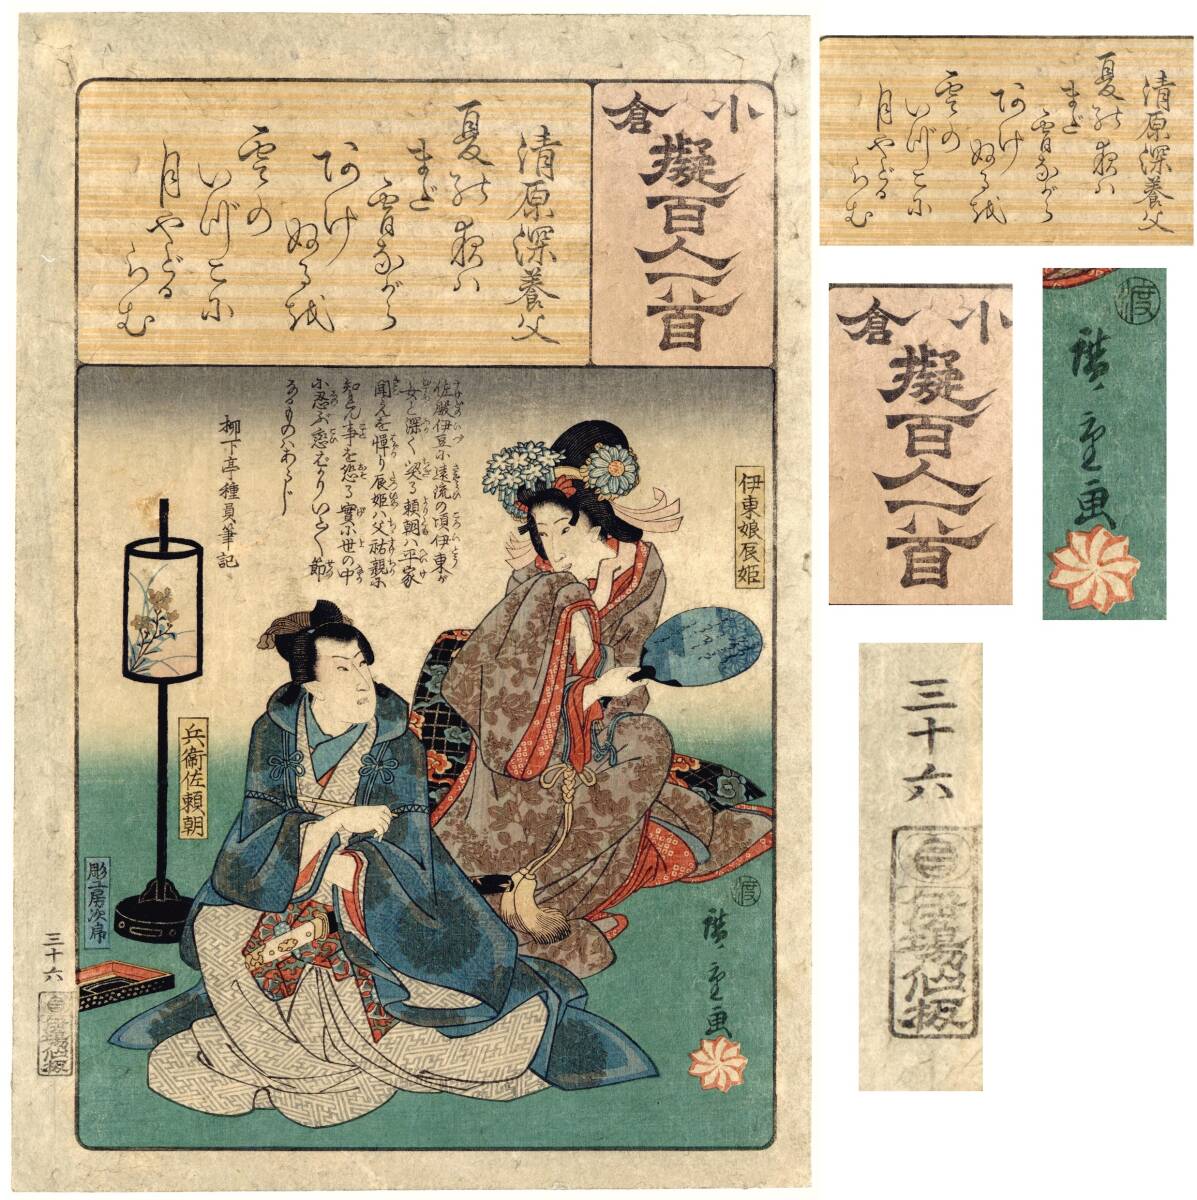 小倉
擬百人一首
清原深養父
夏の夜は
まだ
宵ながら
あけ
ぬるを
雲の
いづこに
月やどる
らむ
佐殿伊豆に遠流の頃伊東が
女と深く契る頼朝ハ平家
聞えを憚り辰姫ハ父祐親に
知られん事を恐る実に世の中
に忍ぶ恋ばかりいとくるしき
なるものハあらじ
柳下亭種員筆記
伊東娘辰姫
兵衛佐頼朝
彫工房次郎
三十六
伊場仙板
渡
廣重画
清原深養父
夏の夜は
まだ
宵ながら
あけ
ぬるを
雲の
いづこに
月やどる
らむ
小倉
擬百人一首
渡
廣重画
三十六
伊場仙板